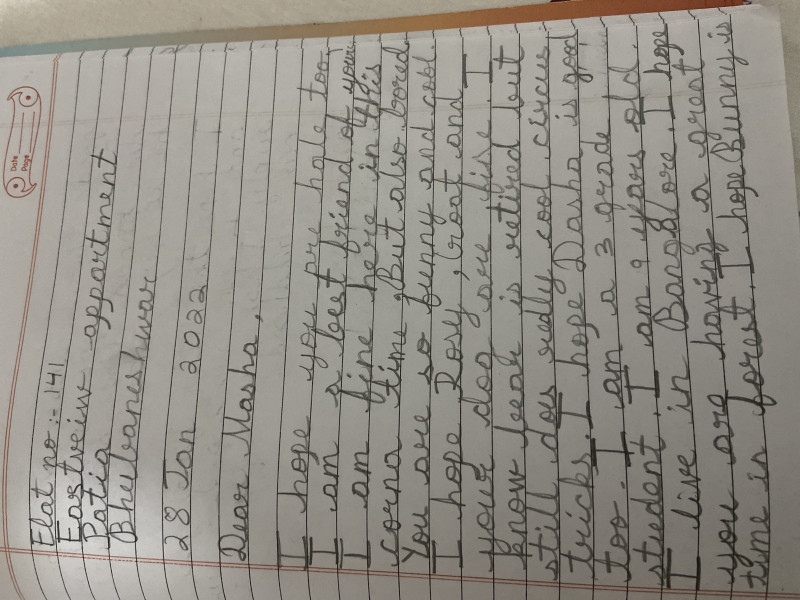 Date
Page
Flat no :- 141
Eastveiw appartment
Patia
Bhubaneshwar
28 Jan 2022
Dear Masha,
I hope you are hale too.
I am a best friend of your.
I am fine here in this
corna time. But also bored
You are so funny and cool.
I hope Rosy, Goat and
your dog are fine. I
know bear is retired but
still dos really cool circus
tricks. I hope Dasha is good
too. I am a 3 grade
student. I am 9 years old.
I live in Bangalore. I hope
you are having a great
time in forest. I hope Bunny is